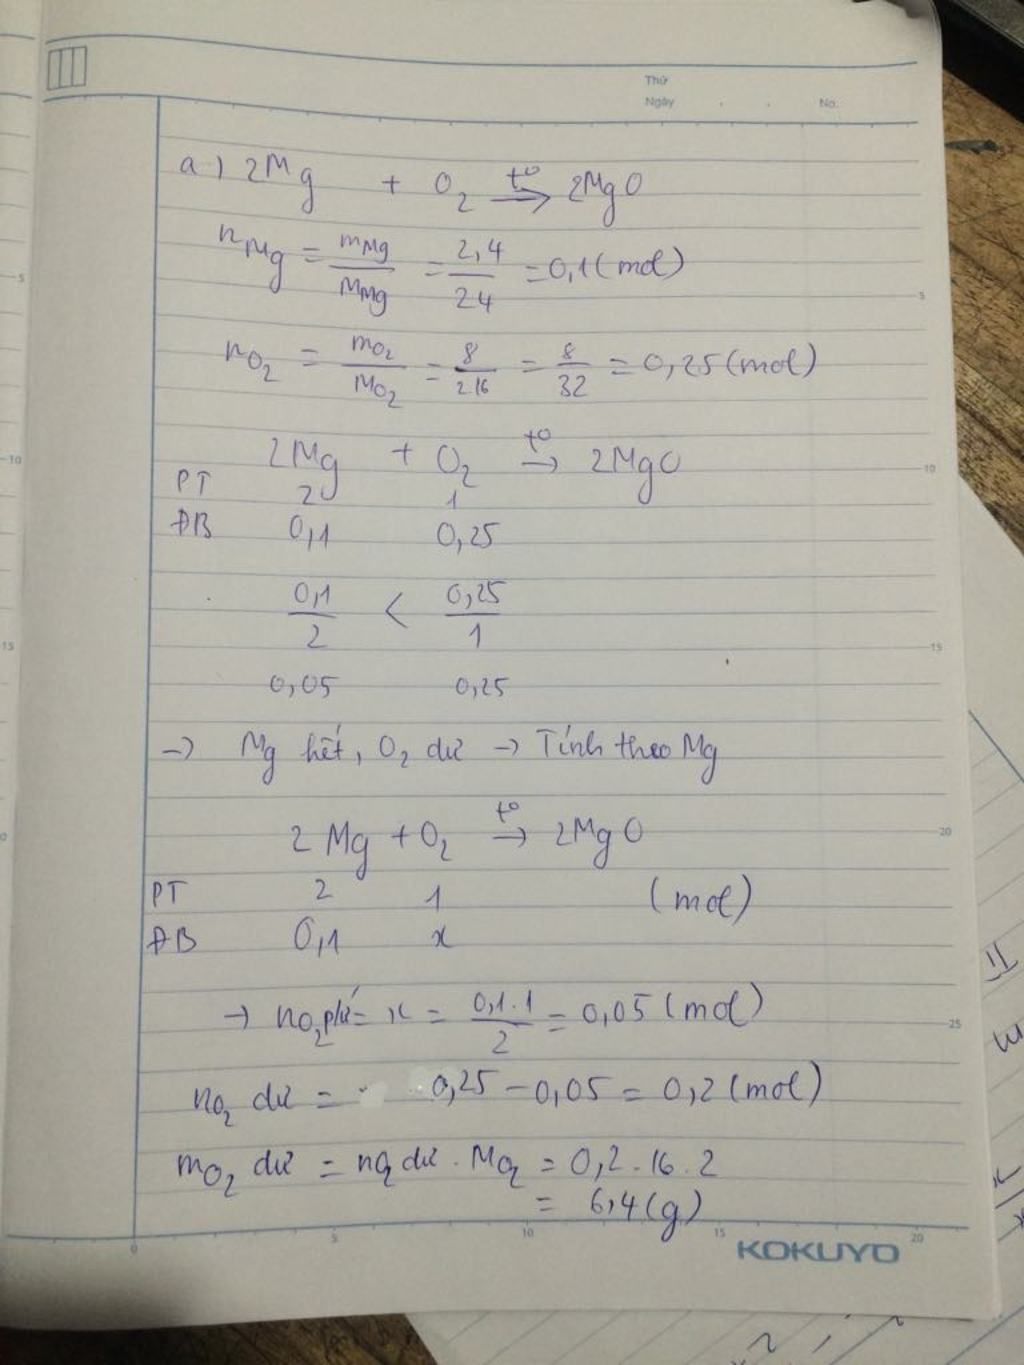 Thứ
Ngày . . No.
a) 2Mg + O₂ t° → 2MgO
nMg = mMg / MMg = 2,4 / 24 = 0,1 (mol)
nO₂ = mO₂ / MO₂ = 8 / 2.16 = 8 / 32 = 0,25 (mol)
2Mg + O₂ t° → 2MgO
PT 2 1
ĐB 0,1 0,25
0,1 / 2 < 0,25 / 1
0,05 0,25
→ Mg hết, O₂ dư → Tính theo Mg
2Mg + O₂ t° → 2MgO
PT 2 1 (mol)
ĐB 0,1 x
→ nO₂ pứ = x = 0,1.1 / 2 = 0,05 (mol)
nO₂ dư = 0,25 - 0,05 = 0,2 (mol)
mO₂ dư = nO₂ dư . MO₂ = 0,2 . 16 . 2
= 6,4 (g)
0 5 10 15 20
KOKUYO